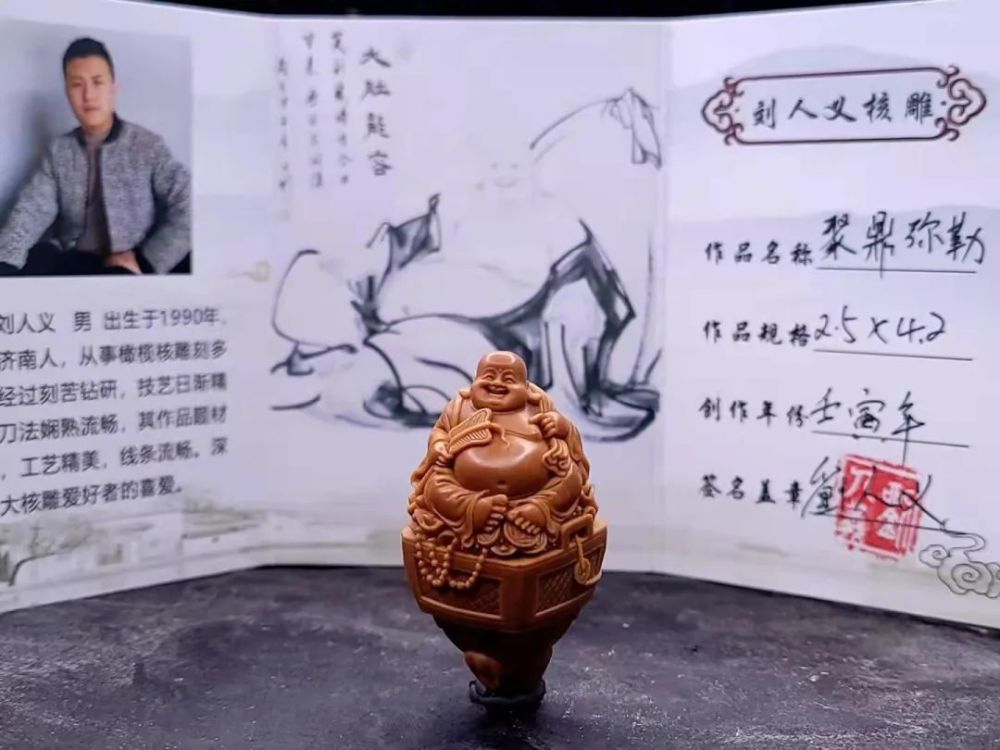 刘人义 男 出生于1990年,
济南人，从事橄榄核雕刻多
经过刻苦钻研，技艺日渐精
刀法娴熟流畅，其作品题材
，工艺精美，线条流畅。深
大核雕爱好者的喜爱。
大肚能容
刘人义核雕
作品名称 聚鼎弥勒
作品规格 2.5×4.2
创作年份 壬寅年
签名盖章 刘人义